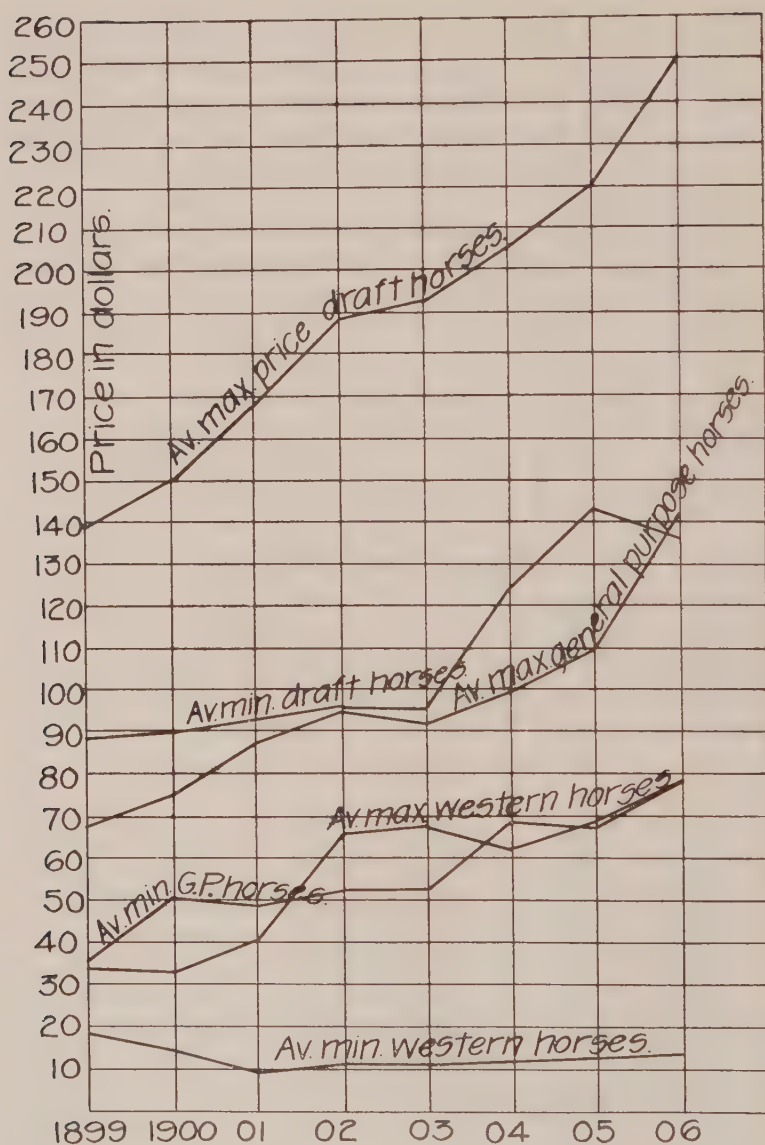 260
250
240
230
220
210
200
190
180
170
160
150
140
130
120
110
100
90
80
70
60
50
40
30
20
10
Price in dollars.
Av. max. price draft horses
Av. min. draft horses
Av. max. general purpose horses.
Av. max. western horses
Av. min. G.P. horses.
Av. min. western horses.
1899 1900 01 02 03 04 05 06